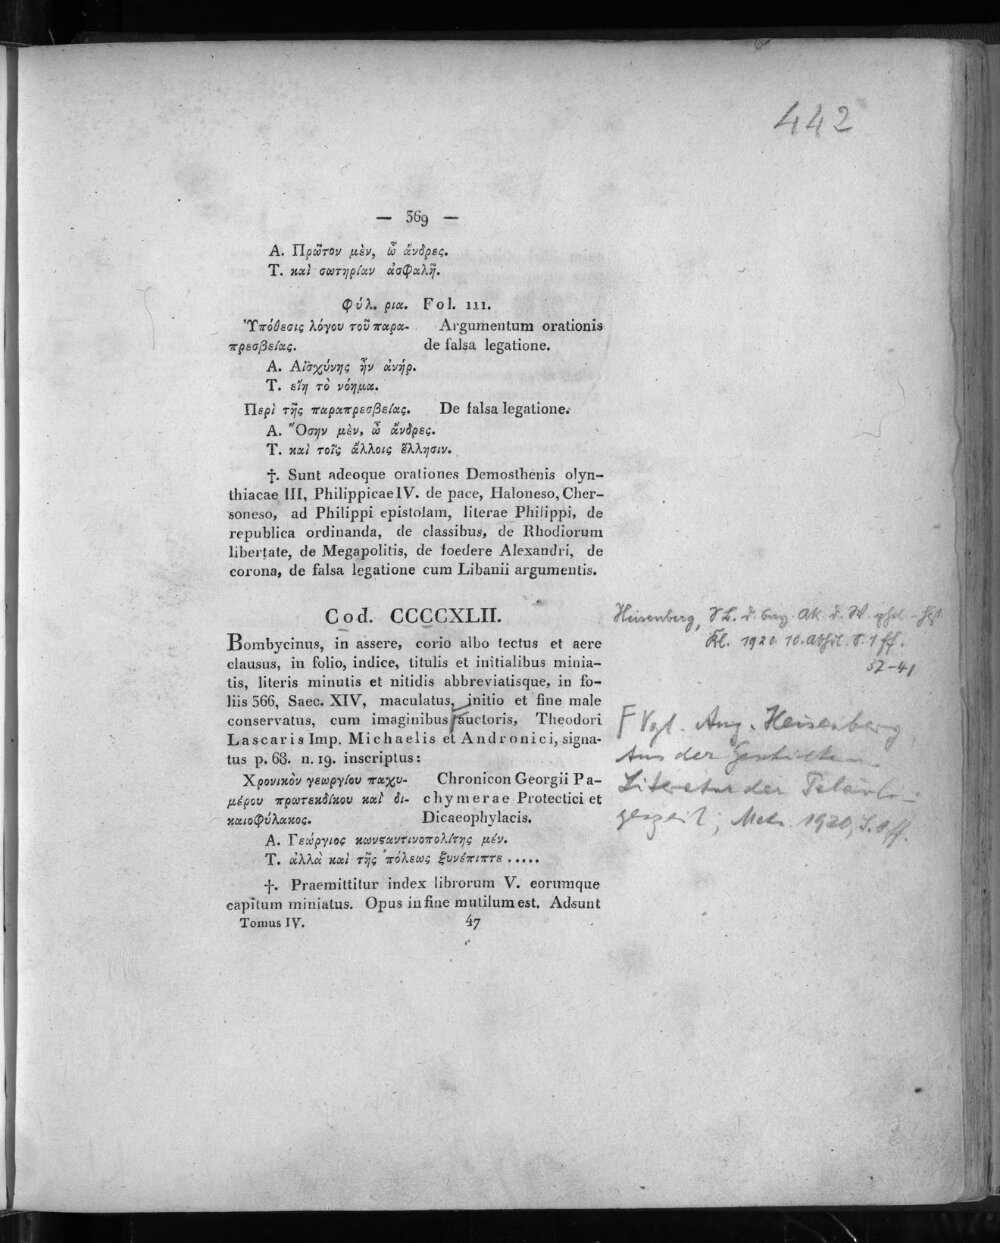 442
— 369 —
Α. Πρῶτον μὲν, ὦ ἄνδρες.
Τ. καὶ σωτηρίαν ἀσφαλῆ.
Φύλ. ρια. Fol. 111.
Ὑπόθεσις λόγου τοῦ παρα- Argumentum orationis
πρεσβείας. de falsa legatione.
Α. Αἰσχύνης ἦν ἀνήρ.
Τ. εἴη τὸ νόημα.
Περὶ τῆς παραπρεσβείας. De falsa legatione.
Α. Ὅσην μὲν, ὦ ἄνδρες.
Τ. καὶ τοῖς ἄλλοις ἕλλησιν.
†. Sunt adeoque orationes Demosthenis olyn-
thiacae III, Philippicae IV. de pace, Haloneso, Cher-
soneso, ad Philippi epistolam, literae Philippi, de
republica ordinanda, de classibus, de Rhodiorum
libertate, de Megapolitis, de foedere Alexandri, de
corona, de falsa legatione cum Libanii argumentis.
Cod. CCCCXLII.
Bombycinus, in assere, corio albo tectus et aere
clausus, in folio, indice, titulis et initialibus minia-
tis, literis minutis et nitidis abbreviatisque, in fo-
liis 366, Saec. XIV, maculatus, initio et fine male
conservatus, cum imaginibus auctoris, Theodori
Lascaris Imp. Michaelis et Andronici, signa-
tus p. 68. n. 19. inscriptus:
Χρονικὸν γεωργίου παχυ- Chronicon Georgii Pa-
μέρου πρωτεκδίκου καὶ δι- chymerae Protectici et
καιοφύλακος. Dicaeophylacis.
Α. Γεώργιος κωνσταντινοπολίτης μέν.
Τ. ἀλλὰ καὶ τῆς πόλεως ξυνέπιπτε .....
†. Praemittitur index librorum V. eorumque
capitum miniatus. Opus in fine mutilum est. Adsunt
Tomus IV. 47
Heisenberg, d. Ak. d. W. phil-hist
Kl. 1920 10. Abhdl. S. 1 ff.
37-41
Vgl. Aug. Heisenberg
Aus der Geschichte u.
Literatur der Palaiolo-
genzeit, 1920, S. 1 ff.